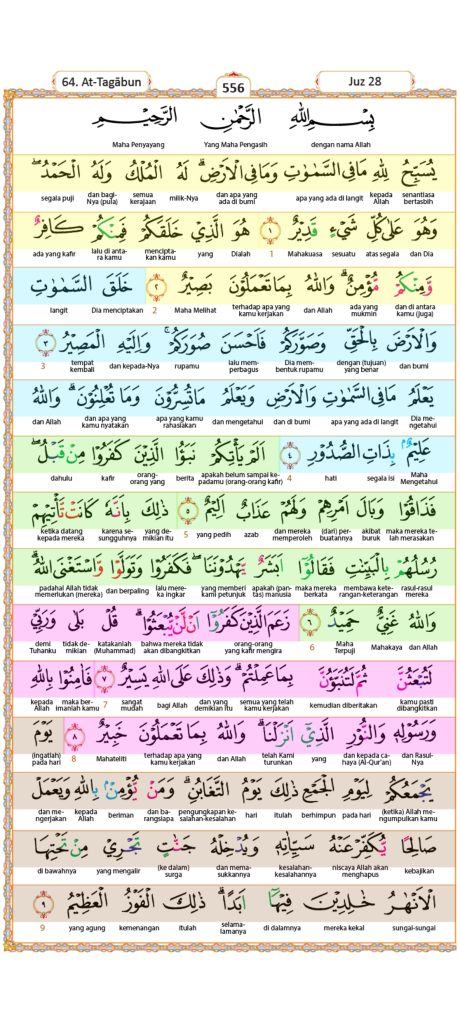 64. At-Tagābun
556
Juz 28
بِسْمِ اللّٰهِ الرَّحْمٰنِ الرَّحِيْمِ
dengan nama Allah Yang Maha Pengasih Maha Penyayang
يُسَبِّحُ لِلّٰهِ مَا فِى السَّمٰوٰتِ وَمَا فِى الْاَرْضِۚ لَهُ الْمُلْكُ وَلَهُ الْحَمْدُۖ
senantiasa bertasbih kepada Allah apa yang ada di langit dan apa yang ada di bumi milik-Nya semua kerajaan dan bagi-Nya (pula) segala puji
وَهُوَ عَلٰى كُلِّ شَيْءٍ قَدِيْرٌ ۝١ هُوَ الَّذِيْ خَلَقَكُمْ فَمِنْكُمْ كَافِرٌ
dan Dia atas segala sesuatu Mahakuasa 1 Dialah yang menciptakan kamu lalu di antara kamu ada yang kafir
وَّمِنْكُمْ مُّؤْمِنٌۗ وَاللّٰهُ بِمَا تَعْمَلُوْنَ بَصِيْرٌ ۝٢ خَلَقَ السَّمٰوٰتِ
dan di antara kamu (juga) ada yang mukmin dan Allah terhadap apa yang kamu kerjakan Maha Melihat 2 Dia menciptakan langit
وَالْاَرْضَ بِالْحَقِّ وَصَوَّرَكُمْ فَاَحْسَنَ صُوَرَكُمْۚ وَاِلَيْهِ الْمَصِيْرُ ۝٣
dan bumi dengan (tujuan) yang benar Dia membentuk rupamu lalu memperbagus rupamu dan kepada-Nya tempat kembali 3
يَعْلَمُ مَا فِى السَّمٰوٰتِ وَالْاَرْضِ وَيَعْلَمُ مَا تُسِرُّوْنَ وَمَا تُعْلِنُوْنَۗ وَاللّٰهُ
Dia mengetahui apa yang ada di langit dan di bumi dan mengetahui apa yang kamu rahasiakan dan apa yang kamu nyatakan dan Allah
عَلِيْمٌۢ بِذَاتِ الصُّدُوْرِ ۝٤ اَلَمْ يَأْتِكُمْ نَبَؤُا الَّذِيْنَ كَفَرُوْا مِنْ قَبْلُۖ
Maha Mengetahui segala isi hati 4 apakah belum sampai kepadamu (orang-orang kafir) berita orang-orang yang kafir dahulu
فَذَاقُوْا وَبَالَ اَمْرِهِمْ وَلَهُمْ عَذَابٌ اَلِيْمٌ ۝٥ ذٰلِكَ بِاَنَّهٗ كَانَتْ تَّأْتِيْهِمْ
maka mereka telah merasakan akibat buruk (dari) perbuatannya dan mereka memperoleh azab yang pedih 5 yang demikian itu karena sesungguhnya ketika datang kepada mereka
رُسُلُهُمْ بِالْبَيِّنٰتِ فَقَالُوْٓا اَبَشَرٌ يَّهْدُوْنَنَاۖ فَكَفَرُوْا وَتَوَلَّوْا وَّاسْتَغْنَى اللّٰهُ ۗ
rasul-rasul mereka membawa keterangan-keterangan maka mereka berkata apakah (pantas) manusia yang memberi kami petunjuk lalu mereka ingkar dan berpaling padahal Allah tidak memerlukan (mereka)
وَاللّٰهُ غَنِيٌّ حَمِيْدٌ ۝٦ زَعَمَ الَّذِيْنَ كَفَرُوْٓا اَنْ لَّنْ يُّبْعَثُوْاۗ قُلْ بَلٰى وَرَبِّيْ
dan Allah Mahakaya Maha Terpuji 6 orang-orang yang kafir mengira bahwa mereka tidak akan dibangkitkan katakanlah (Muhammad) tidak demikian demi Tuhanku
لَتُبْعَثُنَّ ثُمَّ لَتُنَبَّؤُنَّ بِمَا عَمِلْتُمْۗ وَذٰلِكَ عَلَى اللّٰهِ يَسِيْرٌ ۝٧ فَاٰمِنُوْا بِاللّٰهِ
kamu pasti dibangkitkan kemudian diberitakan semua yang telah kamu kerjakan dan yang demikian itu bagi Allah sangat mudah 7 maka berimanlah kamu kepada Allah
وَرَسُوْلِهٖ وَالنُّوْرِ الَّذِيْٓ اَنْزَلْنَاۗ وَاللّٰهُ بِمَا تَعْمَلُوْنَ خَبِيْرٌ ۝٨ يَوْمَ
dan Rasul-Nya dan kepada cahaya (Al-Qur'an) yang telah Kami turunkan dan Allah terhadap apa yang kamu kerjakan Mahateliti 8 (ingatlah) pada hari
يَجْمَعُكُمْ لِيَوْمِ الْجَمْعِ ذٰلِكَ يَوْمُ التَّغَابُنِۗ وَمَنْ يُّؤْمِنْۢ بِاللّٰهِ وَيَعْمَلْ
(ketika) Allah mengumpulkan kamu pada hari berhimpun itulah hari pengungkapan kesalahan-kesalahan dan barangsiapa beriman kepada Allah dan mengerjakan
صَالِحًا يُّكَفِّرْ عَنْهُ سَيِّاٰتِهٖ وَيُدْخِلْهُ جَنّٰتٍ تَجْرِيْ مِنْ تَحْتِهَا
kebajikan niscaya Allah akan menghapus kesalahan-kesalahannya dan memasukkannya (ke dalam) surga yang mengalir di bawahnya
الْاَنْهٰرُ خٰلِدِيْنَ فِيْهَآ اَبَدًاۗ ذٰلِكَ الْفَوْزُ الْعَظِيْمُ ۝٩
sungai-sungai mereka kekal di dalamnya selama-lamanya itulah kemenangan yang agung 9